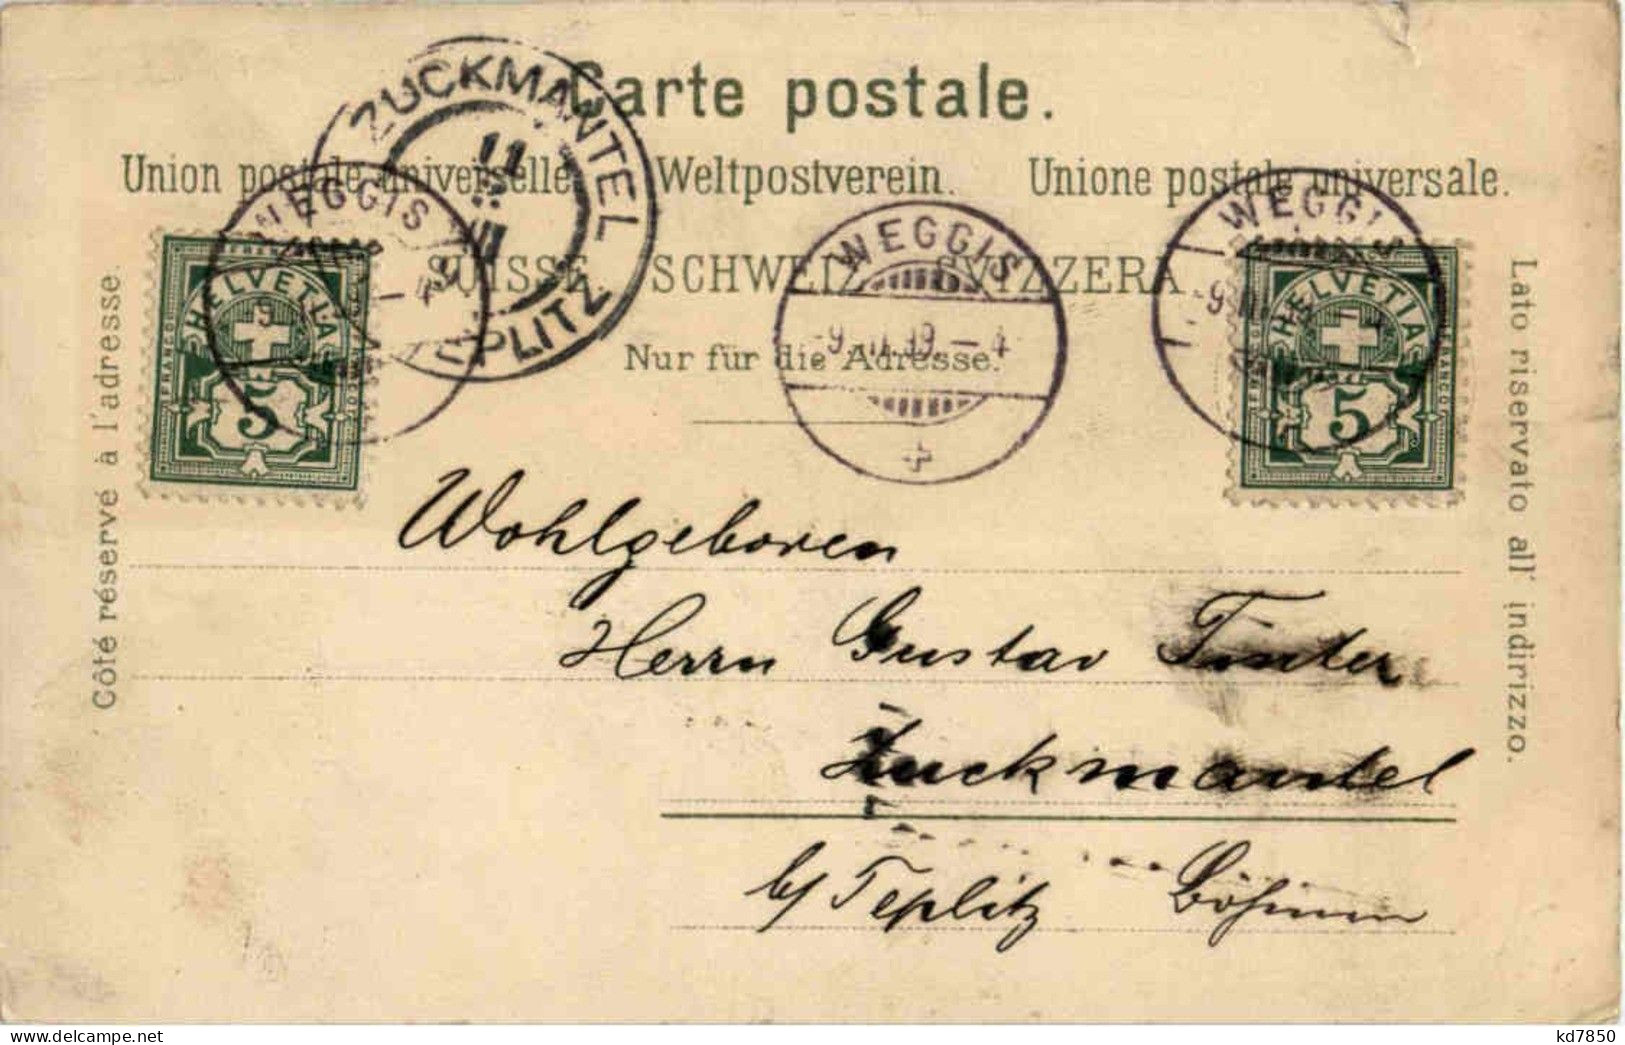 Carte postale.
Union postale universelle. Weltpostverein. Unione postale universale.
SUISSE. SCHWEIZ. SVIZZERA.
Nur für die Adresse.
Côté réservé à l'adresse.
Lato riservato all' indirizzo.
ZUCKMANTEL
11
WEGGIS
HELVETIA
FRANCO
5
WEGGIS
-9. 99.-4
WEGGIS
-9
HELVETIA
FRANCO
5
Wohlgeboren
Herrn Gustav
Zuckmantel
b/ Teplitz Böhmen
kd7850